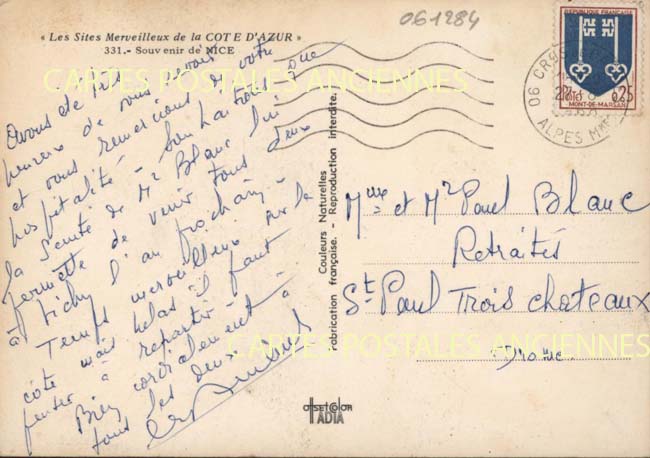 061284
« Les Sites Merveilleux de la COTE D'AZUR »
331.- Souvenir de NICE
CARTES POSTALES ANCIENNES
heureux de vous avoir
et vous remercions de votre
hospitalité - Souhaitons que
la Santé de Mr Blanc lui
permette de venir tous deux
à Vichy l'an prochain -
Temps merveilleux sur la
côte mais hélas il faut
penser à repartir -
Bien cordialement à
tous les deux
Couleurs Naturelles
Fabrication française. - Reproduction interdite.
REPUBLIQUE FRANÇAISE
0,25
MONT-DE-MARSAN
06
ALPES MMES
Mme et Mr Paul Blanc
Retraités
St Paul Trois chateaux
CARTES POSTALES ANCIENNES
Drome
offset color
IADIA